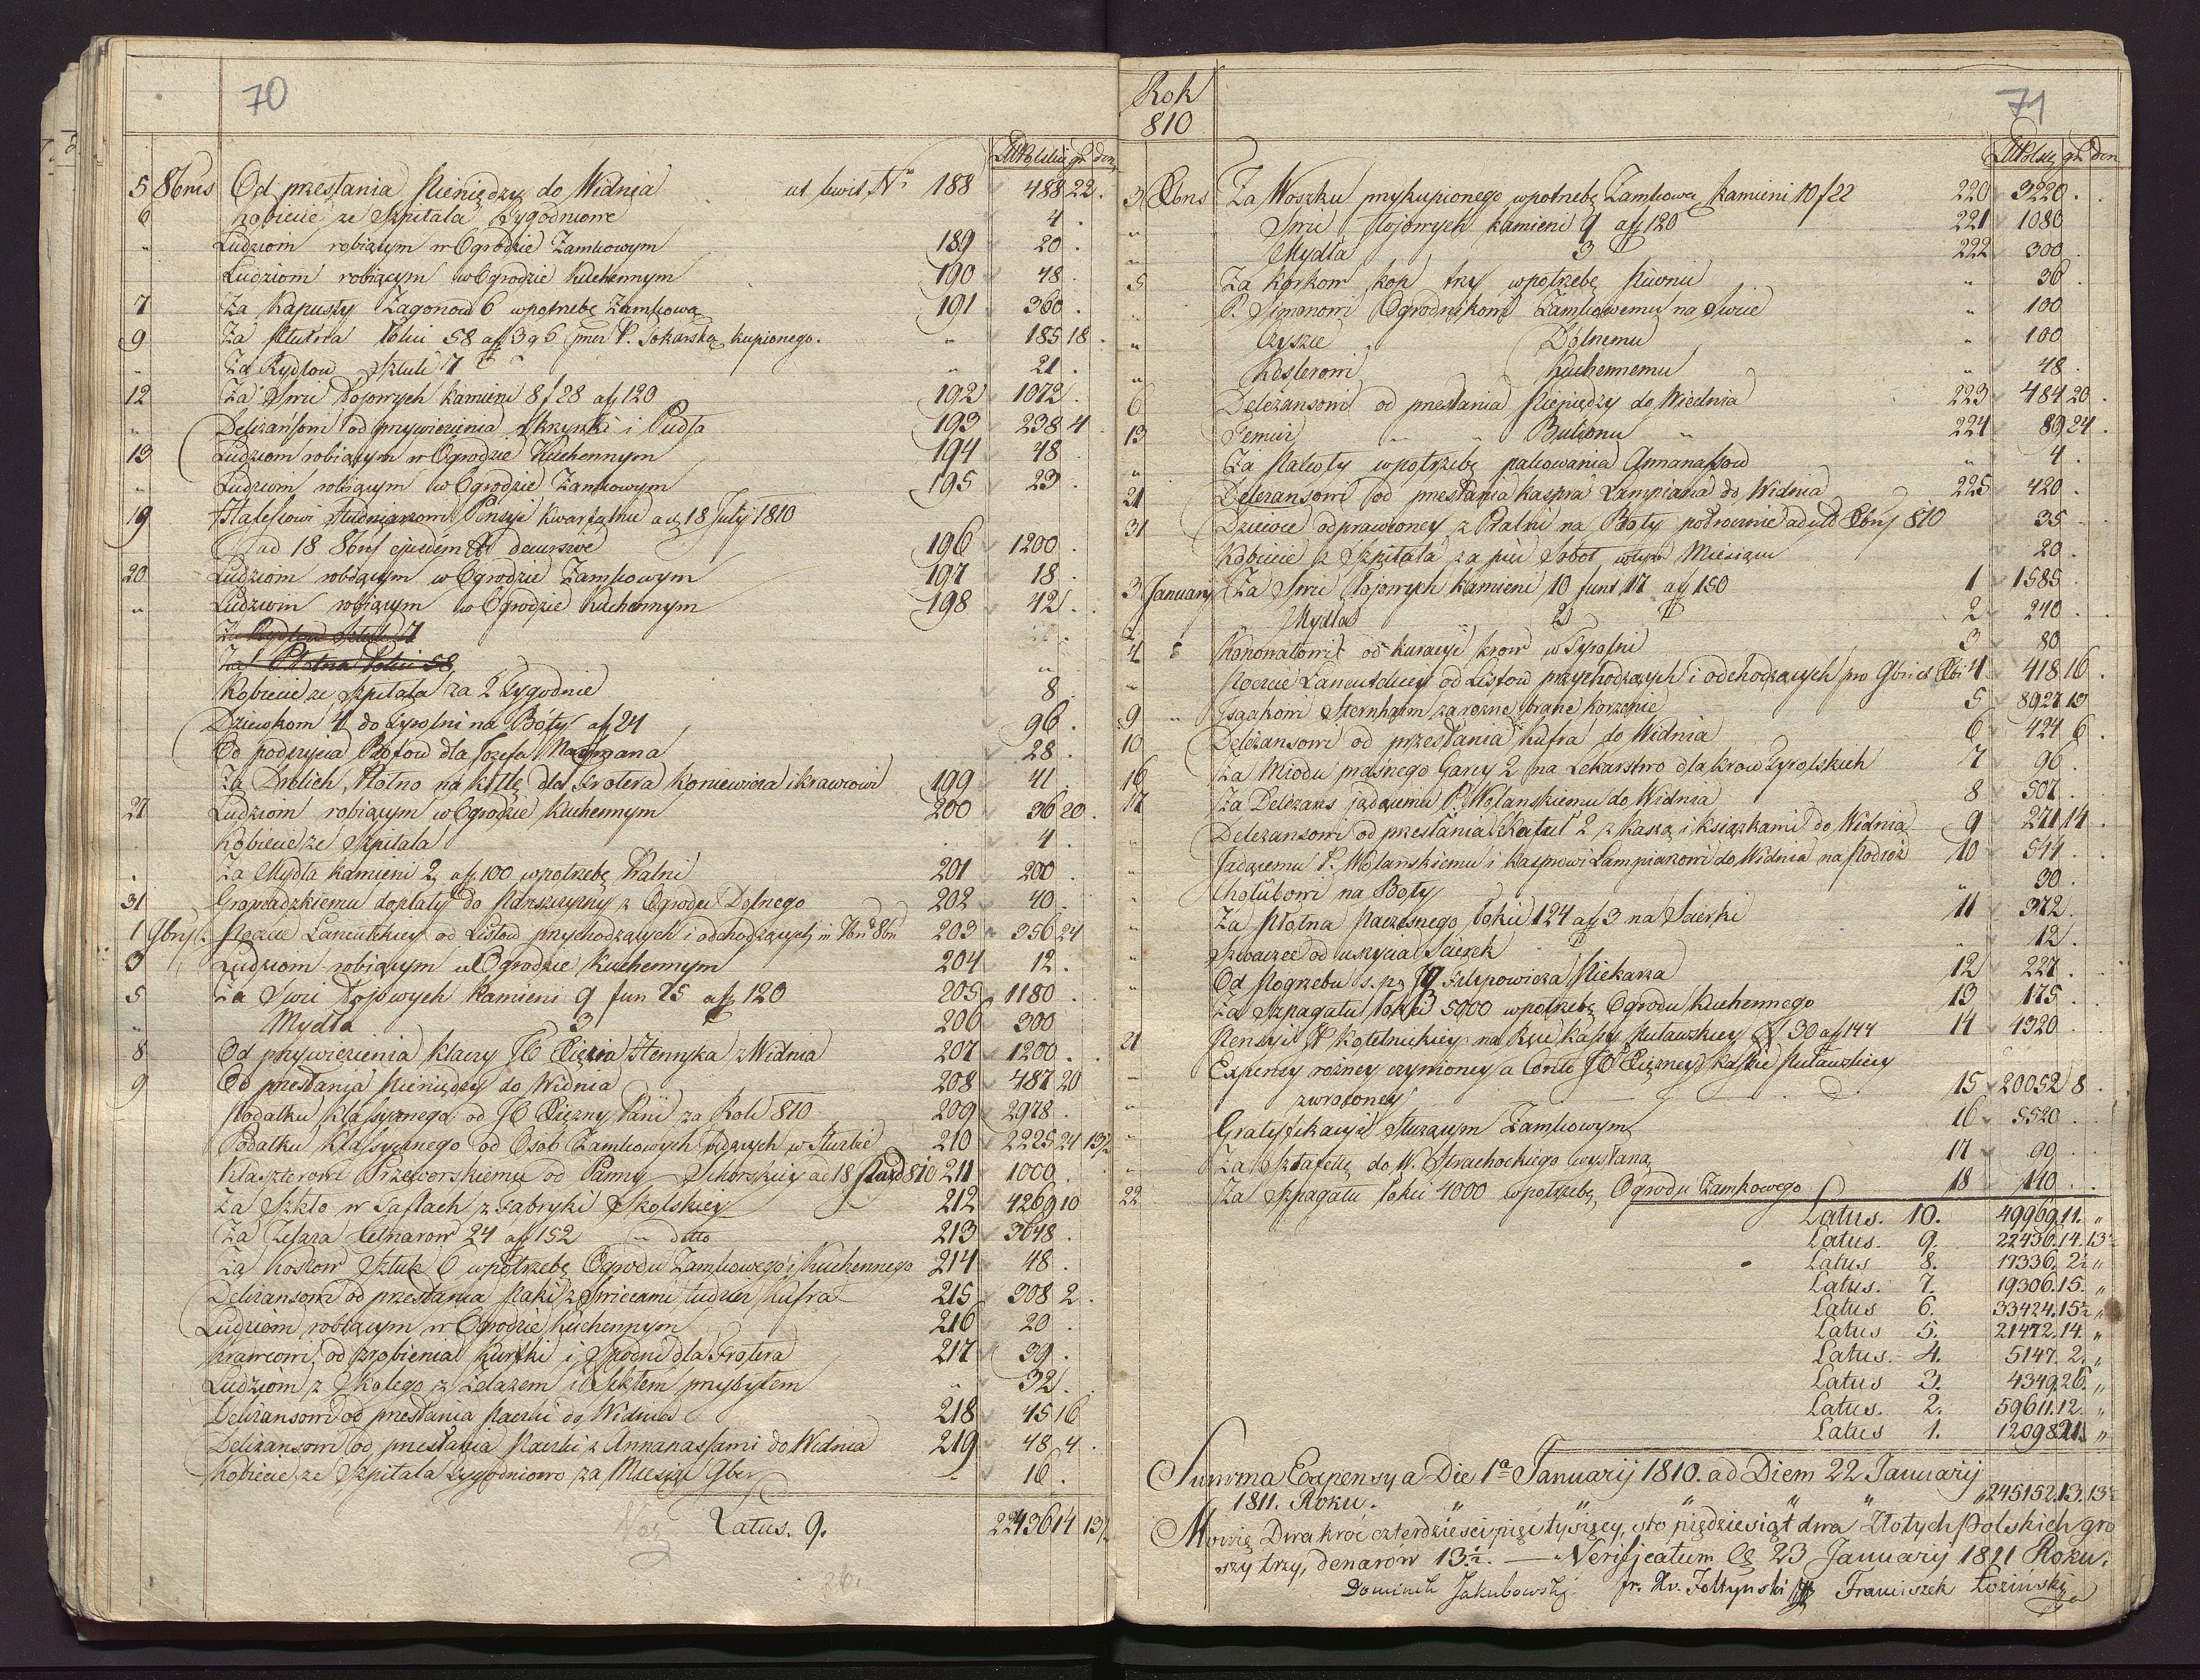 70
Złt Polskie gr den
5 8bris Od przesłania Pieniędzy do Widnia ut kwit No 188 488 22
6 Kobiecie ze Szpitala Tygodniowe 4
" Ludziom robiącym w Ogrodzie Zamkowym 189 20
Ludziom robiącym w Ogrodzie Kuchennym 190 48
7 Za Kapusty Zagonow 6 wpotrzebę Zamkową 191 360
9 Za Płutna łokci 58 a f 3 g 6 przez P. Tokarską kupionego. " 185 18
" Za Rydlow Sztuk 7 " 21
12 Za Swic Łojowych kamieni 8 f 28 a f 120 192 1072
" Deliżansowi od przywiezienia Skrzynki i Pudła 193 238 4
13 Ludziom robiącym w Ogrodzie Kuchennym 194 48
" Ludziom robiącym w Ogrodzie Zamkowym 195 23
19 Studniarzowi Pensyi kwartalnie ad 18 July 1810
ad 18 8bris ejusdem decursive 196 1200
20 Ludziom robiącym w Ogrodzie Zamkowym 197 18
" Ludziom robiącym w Ogrodzie Kuchennym 198 42
Za Rydlow Sztuk 7
Za Płotna łokci 58 "
Kobiecie ze Szpitala za 2 Tygodnie 8
Dziewkom 4 do Tyrolni na Bóty a f 24 96
Od podszycia Botow dla Jozefa 28
Za Drelich, Płotno na kitlę dla Frotera Koniewicza i krawcowi 199 41
27 Ludziom robiącym w Ogrodzie Kuchennym 200 36 20
Kobiecie ze Szpitala 4
Za Mydła kamieni 2 a f 100 wpotrzebę Pralni 201 200
31 Gromadzkiemu dopłaty do Pańszczyzny z Ogrodu Dolnego 202 40
1 9bris Poczcie Lancutskiey od Listow przychodzących i odchodzących in 7bri 8bri 203 356 24
3 Ludziom robiącym w Ogrodzie Kuchennym 204 12
5 Za Swic Łojowych kamieni 9 fun 25 a f 120 205 1180
" Mydła 3 206 300
8 Od przywiezienia Klaczy JO Xięcia Henryka z Widnia 207 1200
9 Od przesłania Pieniędzy do Widnia 208 487 20
Podatku klassycznego od JO Xiężny Pani za Rok 810 209 2978
Podatku klassycznego od Osob Zamkowych będących w Służbie 210 2225 24 13½
Klasztorowi Przeworskiemu od Panny Sikorskiey ad 18 Pazd 810 211 1000
Za Szkło w Taflach z Fabryki Skolskiey 212 4269 10
Za Żelaza Cetnarow 24 a f 152 " detto 213 3648
Za Koszow Sztuk 6 wpotrzebę Ogrodu Zamkowego i Kuchennego 214 48
Deliżansowi od przesłania Paki z Swiecami tudzież Kufra 215 308 2
Ludziom robiącym w Ogrodzie Kuchennym 216 20
Krawcowi od zrobienia Kurtki i Spodni dla Frotera 217 39
Ludziom z Skolego z Żelazem i Szkłem przybyłem " 32
Deliżansowi od przesłania Paczki do Widnia 218 45 16
Deliżansowi od przesłania Paczki z Annanassami do Widnia 219 48 4
Kobiecie ze Szpitala tygodniowo za Miesiąc 9ber " 16
Latus. 9. 22436 14 13½
Rok
810
71
Złt Polskie gr den
3 Xbris Za Woszku przykupionego wpotrzebę Zamkową kamieni 10 f 22 220 3220
" Swic Łojowych kamieni 9 a f 120 221 1080
" Mydła 3 222 300
5 Za Korkow kop trzy wpotrzebę Piwnic " 36
" P. Simonowi Ogrodnikowi Zamkowemu na Swice " 100
" Czyszce Dólnemu " 100
" Keslerowi Kuchennemu " 48
6 Deliżansowi od przesłania Pieniędzy do Wiednia 223 484 20
13 Temuż " " Bulionu " 224 89 24
" Za Rakoty wpotrzebę pakowania Annanassow " 4
21 Deliżansowi od przesłania Kaspra Lampiarza do Widnia 225 420
31 Dziewce odprawioney z Pralni na Boty połrocznie ad ult Xbris 810 35
Kobiecie z Szpitala za pięć Sobot w tym Miesiącu 20
3 January Za Swic Łojowych kamieni 10 funt 17 a f 150 1 1585
" Mydła 2 2 240
4 Kononatowi od kuracyi krow w Tyrolni 3 80
" Poczcie Lancutskiey od Listow przychodzących i odchodzących pro 9bri et Xbri 4 418 16
9 " Isaakowi Sternheim za rozne brane korzenie 5 8927 13
10 Deliżansowi od przesłania Kufra do Widnia 6 424 6
16 Za Miodu praśnego Garcy 2 na Lekarstwo dla krow Tyrolskich 7 96
17 Za Deliżans jadącemu P. Wolanskiemu do Widnia 8 507
" Deliżansowi od przesłania Szkatuł 2 z Kassą i książkami do Widnia 9 271 14
" Jadącemu P. Wolanskiemu i Kasprowi Lampiarzowi do Widnia na Podróż 10 544
" Chołubowi na Boty " 30
" Za Płotna Paczesnego łokci 124 a f 3 na Scierki 11 372
" Szwaczce od uszycia Scierek " 12
" Od Pogrzebu s. p. Filipowicza Piekarza 12 227
" Za Szpagatu łokci 5000 wpotrzebę Ogrodu Kuchennego 13 175
21 Pensyi JP Kotelnickiey na Ręce Kassy Puławskiey # 30 a f 144 14 4320
" Expensy rozney czynioney a Conto JO Xiężney Kassie Puławskiey
" zwroconey 15 20052 8
" Gratyfikacyi Służącym Zamkowym 16 5520
" Za Sztafetę do W. Strachockiego wysłaną 17 99
22 Za Szpagatu łokci 4000 wpotrzebę Ogrodu Zamkowego 18 140
Latus. 10. 49969.11. "
Latus. 9. 22436.14.13½
Latus 8. 17336. 2½ "
Latus. 7. 19306.15. "
Latus 6. 33424.15½ "
Latus 5. 21472.14. "
Latus. 4. 5147. 2. "
Latus 3. 4349.26. "
Latus. 2. 59611.12. "
Latus 1. 12098.21. "
Summa Expensy a Die 1a Januarij 1810. ad Diem 22 Januarij
1811. Roku. " " " " " " 245152.13.13½
Mowię Dwakroć czterdzieści pięć tysięcy, sto pięćdziesiąt dwa Złotych Polskich gro
szy trzy, denarów 13.½. — Verificatum 23 Januarij 1811 Roku.
Dominik Jakubowski. fr. Xv. Foltyński Franciszek Łoziński